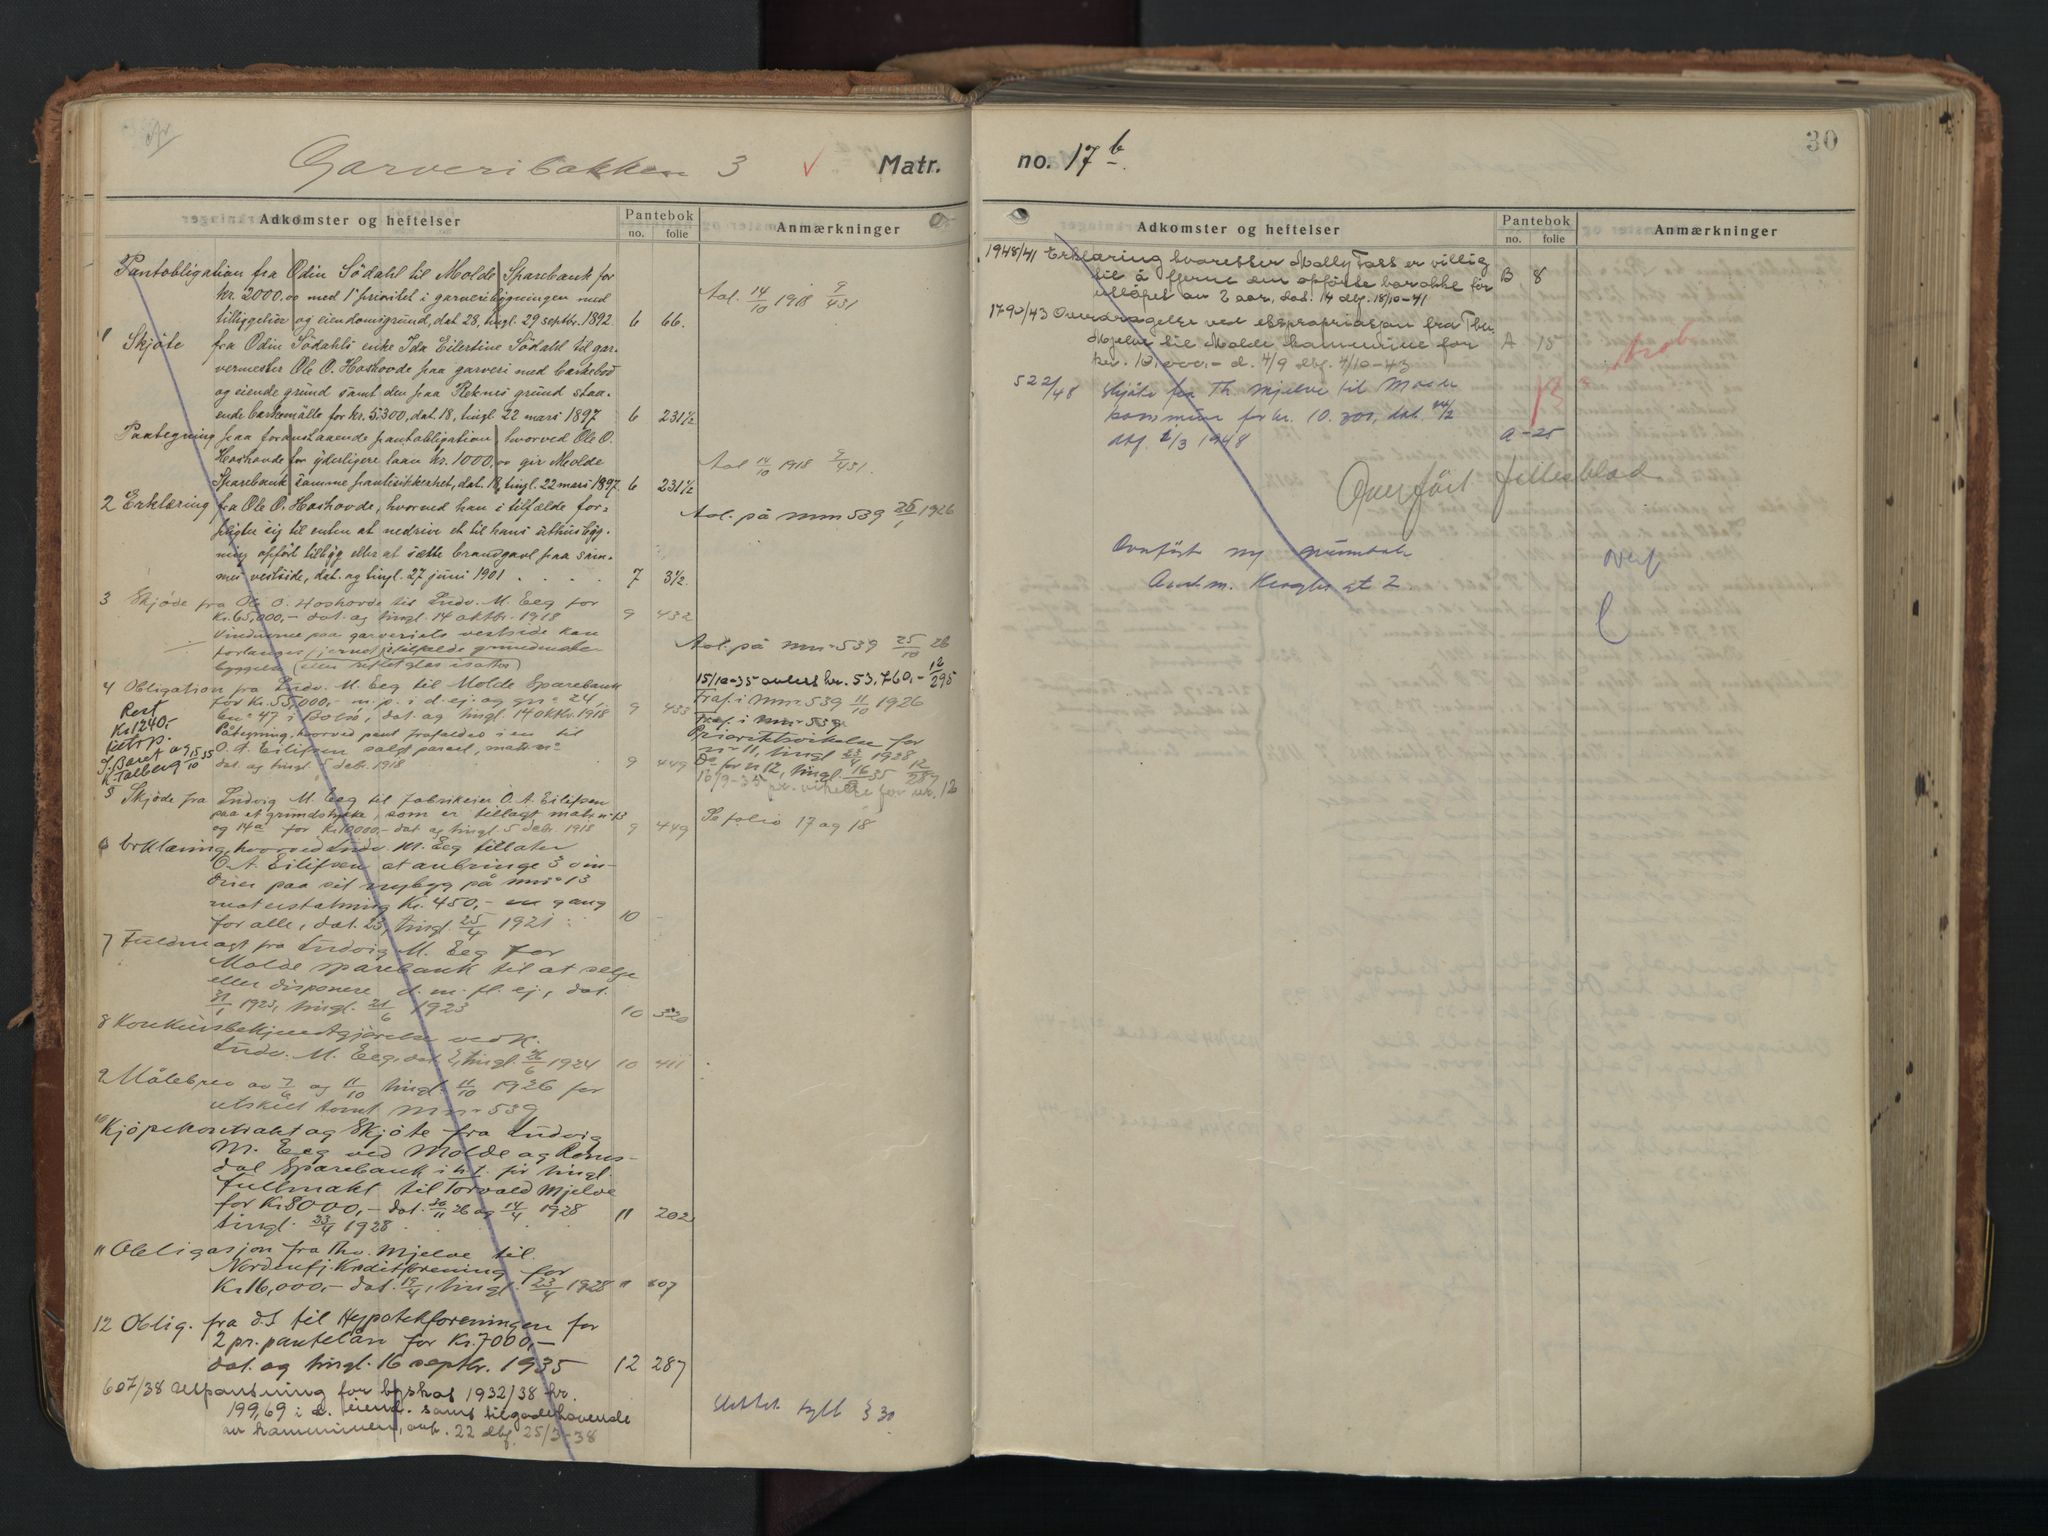 Garveribakken 3 Matr.
Adkomster og heftelser
Pantebok
no. folie
Anmærkninger
Pantobligation fra Odin Södahl til Molde Sparebank for
kr. 2000.00 med 1' prioritet i garveribygningen med
tilliggelser og eiendomsgrund, dat 28, tingl. 29 septbr. 1892. 6 66.
Avl. 14/10 1918 9/431
1 Skjöte fra Odin Södahls enke Ida Eilertine Södahl til gar-
vermester Ole O. Hoshovde paa garveri med barkebod
og eiende grund samt den paa Reknes grund staa-
ende barkemölle for kr. 5300, dat. 18, tingl. 22 mars 1897 6 231½
Paategning paa foranstaaende pantobligation, hvorved Ole O.
Hoshovde for yderligere laan kr. 1000.00 gir Molde
Sparebank samme pantesikkerhet, dat. 18, tingl. 22 mars 1897. 6 231½
Avl 14/10 1918 9/431.
2 Erklæring fra Ole O. Hoshovde, hvorved han i tilfælde for-
pligter sig til enten at nedrive et til hans uthusbyg-
ning opført tilbyg eller at sætte brandgavl paa sam-
mes vestside, dat. og tingl. 27 juni 1901 . . . . 7 3½.
Avl. på mnr 539 1926
3 Skjöde fra Ole O. Hoshovde til Ludv. M. Eeg for
Kr. 65,000,- dat. og tingl. 14 oktbr. 1918 9 432
Vinduerne paa garveriets vestside kan
forlanges fjernet i tilfælde grunden be-
bygges (eller isættes)
Avl. på mnr 539 25/10 26
4 Obligation fra Ludv. M. Eeg til Molde Sparebank
for Kr. 55,000,- m. p. i d. ej. og gnr 24,
bnr 47 i Bolsö, dat. og tingl. 14 oktbr. 1918 9 433
Rest
Kr. 1240,-
Påtegning, hvorved pant frafaldes i en til
O. A. Eilifsen solgt parcel, matr. nr
dat. og tingl. 5 debr. 1918 9 449
15/10-35 avlest kr. 53,760,- 12/295
Fraf. i mnr 539 11/10 1926
Fraf. i mnr 539
Prioritetsvikelse for
nr 11, tingl 23/4 1928
Do for nr 12, tingl. 16/9 35 12/287
16/9-35 pr. vikelse for nr. 12
5 Skjöde fra Ludvig M. Eeg til fabrikeier O. A. Eilifsen
paa et grundstykke, som er tillagt matr. nr 13
og 14a for Kr. 10000,- dat. og tingl. 5 debr. 1918 9 449
Se folio 17 og 18
6 Erklæring, hvorved Ludv. M. Eeg tillater
O. A. Eilifsen at anbringe 3 vin-
duer paa sit nybyg på mnr 13
mot erstatning Kr. 450,- en gang
for alle, dat. 23, tingl. 25/4 1921 10 -
7 Fuldmagt fra Ludvig M. Eeg for
Molde sparebank til at selge
eller disponere d. m. fl. ej., dat.
1923, tingl. 21/6 1923 10 320
8 Konkursbekjendtgjörelse ved k.
Ludv. M. Eeg, dat. tingl. 26/6 1924 10 411
9 Målebrev av 7/6 og 11/10 tingl. 11/10 1926 for
utskilt tomt mnr 539
10 Kjöpekontrakt og Skjöte fra Ludvig
M. Eeg ved Molde og Roms-
dal Sparebank i h. t. tingl.
fullmakt til Torvald Mjelve
for Kr. 8000,- dat. 30/11 26 og 14/4 1928
tingl. 23/4 1928 11 202
11 Obligasjon fra Thv. Mjelve til
Nordenfj. Kreditforening for
Kr. 16,000,- dat. 19/4, tingl. 23/4 1928 11
12 Oblig. fra d.s. til Hypotekforeningen for
2 pr. pantelån for Kr. 7000,-
dat. og tingl. 16 septbr. 1935 12 287
607/38 Utpantning for byskat 1932/38 kr.
199,69 i d. eiend. samt tilgodehavende
av kommunen, avh. 22 dbf. 25/3-38
Slettet tgll § 30
no. 17 b.
30
Adkomster og heftelser
Pantebok
no. folie
Anmærkninger
1948/41 Erklæring hvoretter Molly Foss er villig
til å fjerne den opförte barakke för
utlöpet av 2 aar, dat. 14 dbf. 18/10-41 B 8
1790/43 Overdragelse ved ekspropriasjon fra Thv.
Mjelve til Molde kommune for
kr. 10,000.- d. 4/9 dbf. 4/10-43 A 15
522/48 Skjöte fra Th Mjelve til Molde
kommune for kr. 10. dat. 24/2
dbf. 2/3 1948 A-25
Overfört fellesblad
Overfört ny grunnbok